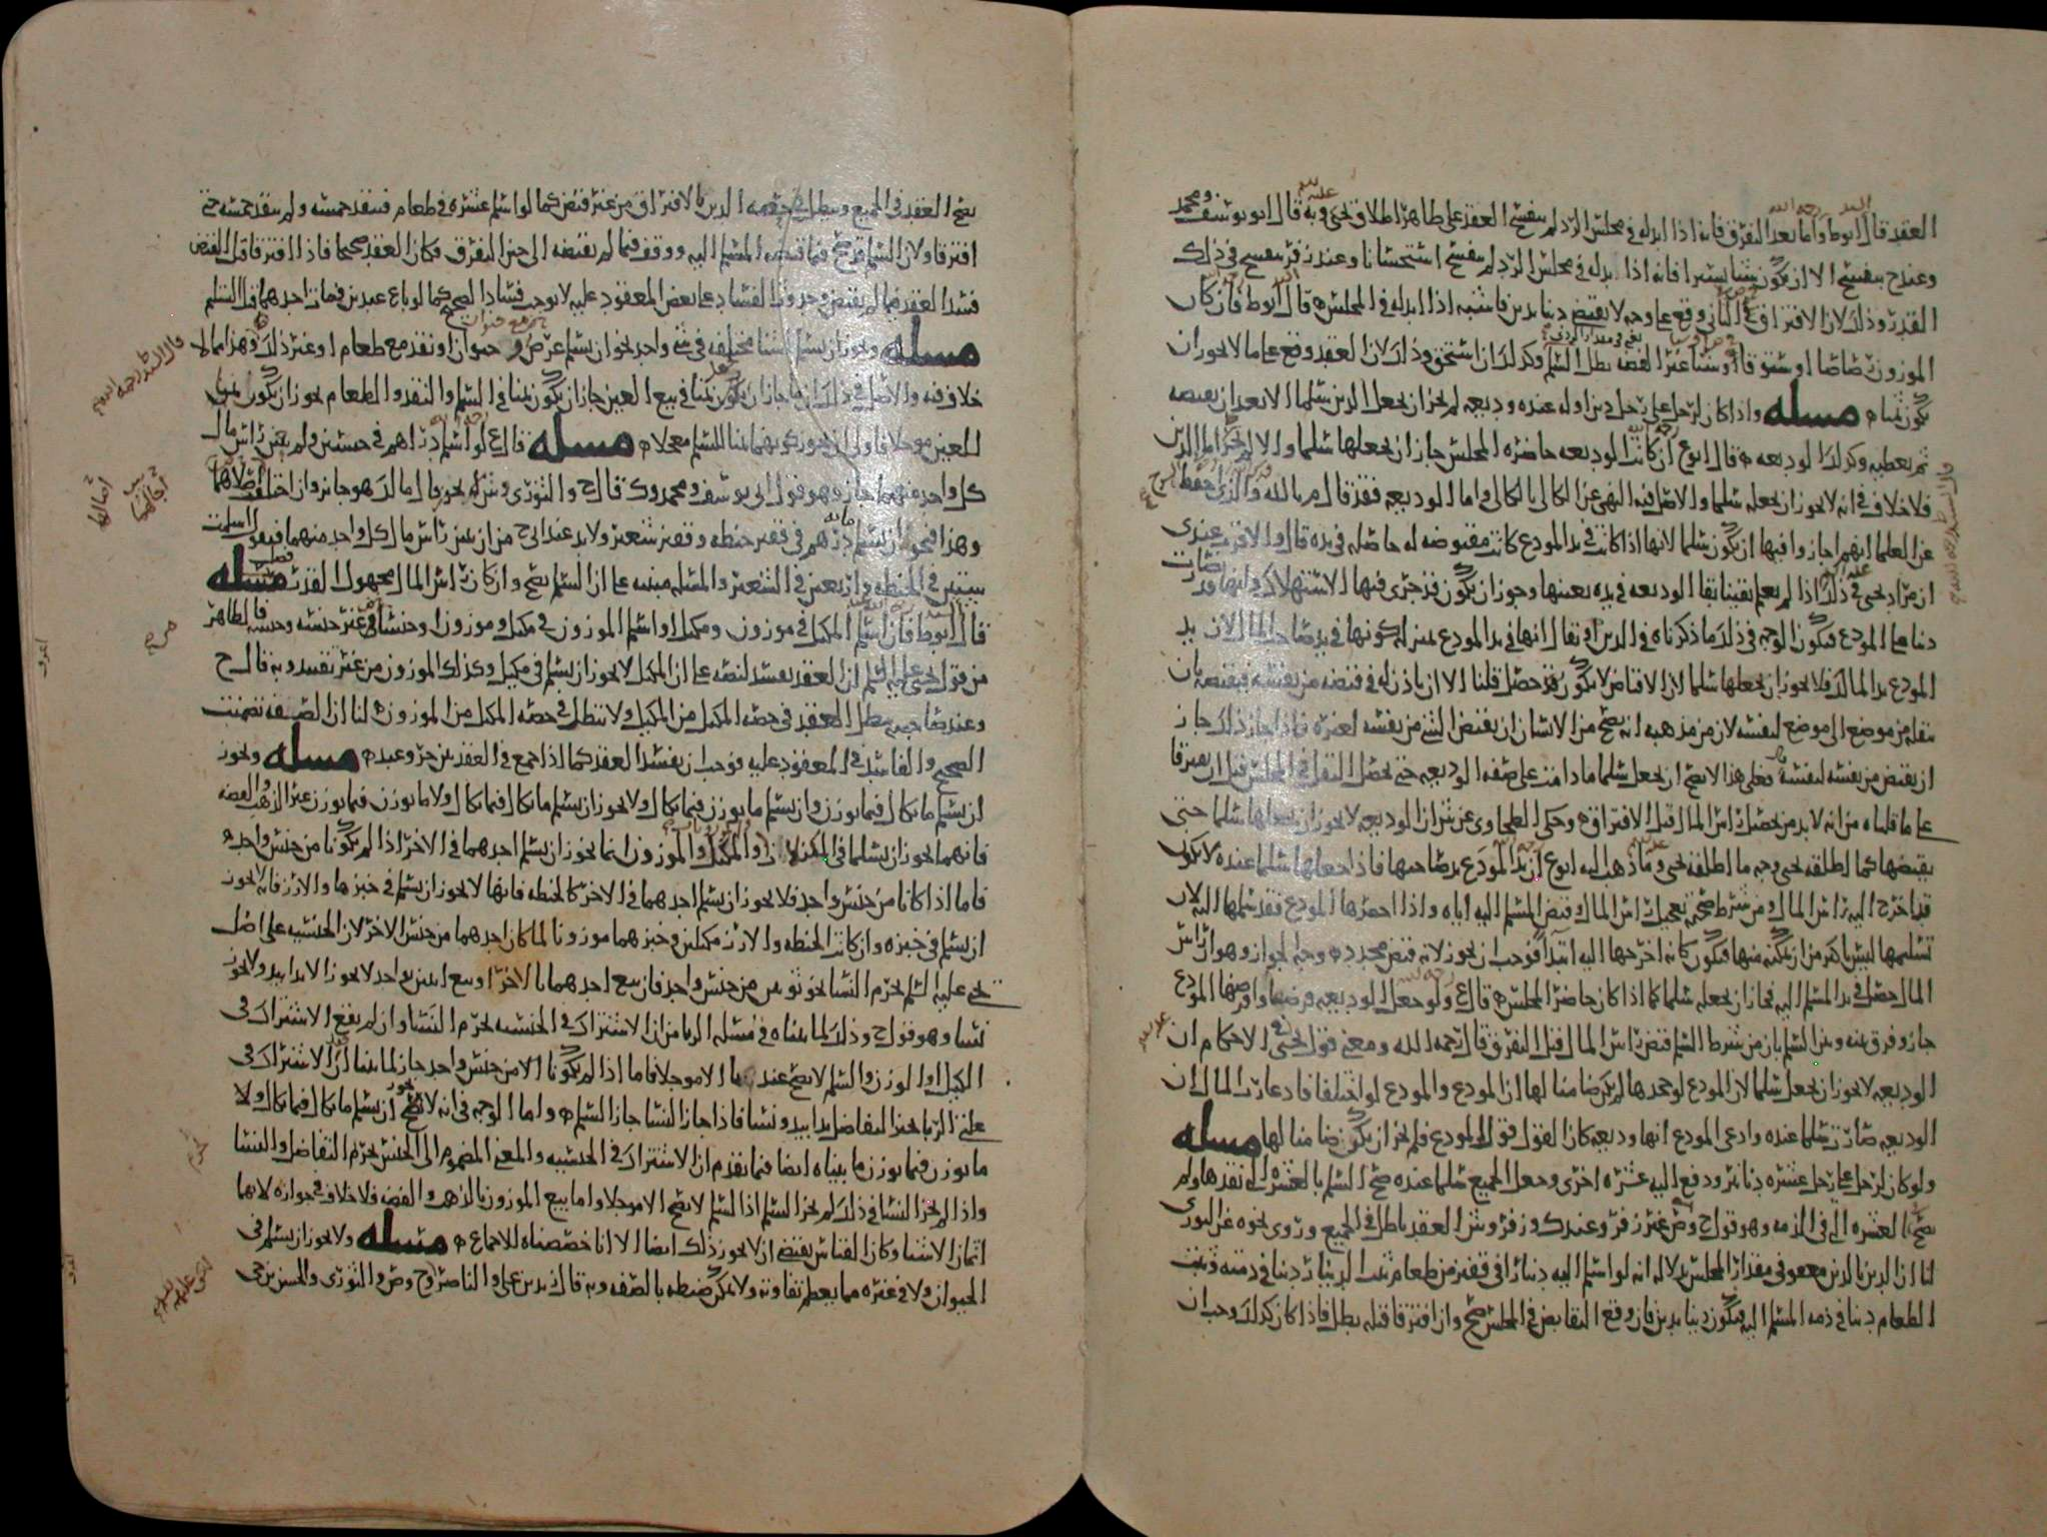 العقد قال ابوط واما بعد التفرق فانه اذا ابدله في مجلس الرد لم ينفسخ العقد على ظاهر اطلاق يحيى وبه قال ابو يوسف ومحمد
وعند ح ينفسخ الا ان يكون شيا يسيرا فانه اذا ابدله في مجلس الرد لم ينفسخ استحسانا وعند زفر ينفسخ في ذلك
القدر وذلك لان الافتراق الثاني وقع على وجه لا يقتضي دينا بدين فاشبه اذا ابدله في المجلس قال ابوط فان كان
الموزون رصاصا او ستوقا او شيا غير الفضه بطل السلم وكذلك ان استحق وذلك لان العقد وقع على ما لا يجوز ان
يكون ثمنا مسله واذا كان لرجل على رجل دين او له عنده وديعه لم يجز ان يجعل الدين سلما الا بعد ان يقبضه
ثم يعطيه وكذلك الوديعه قال ابوع ان كانت الوديعه حاضره المجلس جاز ان يجعلها سلما والا لم يجز اما الدين
فلا خلاف في انه لا يجوز ان يجعله سلما والاصل فيه النهي عن الكالي بالكالي واما الوديعه فقد قال م بالله والذي احفظ
عن العلما انهم اجازوا فيها ان يكون سلما لانها اذا كانت في يد المودع كانت مقبوضه له حاصله في يده قال والاقرب عندي
ان مراد يحيى في ذلك اذا لم يعلم يقينا بقا الوديعه في يده بعينها وجوز ان يكون قد جرى فيها الاستهلاك وانها قد صارت
دينا على المودع فيكون الوجه في ذلك ما ذكرناه في الدين او يقال انها في يد المودع بمنزله كونها في يد صاحب المال لان يد
المودع يد المالك فلا يجوز ان يجعلها سلما لان الاقباض لا يكون قد حصل قلنا الا ان ياذن له في قبضه من نفسه فيقبضه بان
ينقله من موضع الى موضع لنفسه لان من مذهبه انه يصح من الانسان ان يقبض الشي من نفسه لغيره فاذا جاز ذلك جاز
ان يقبض من نفسه لنفسه فعلى هذا لا يصح ان يجعل سلما ما دامت على صفه الوديعه حتى يحصل النقل في المجلس قبل ان يفترقا
على ما قلناه من انه لا بد من تحصيل راس المال قبل الافتراق وحكى الطحاوي عن ش ان الوديعه لا يجوز ان يجعلها سلما حتى
يقبضها كما اطلقه يحيى وجه ما اطلقه يحيى وما ذهب اليه ابوع ان يد المودع يد صاحبها فاذا جعلها سلما عنده لا يكون
قد اخرج اليه راس المال ومن شرط صحته تعجيل راس المال وقبض المسلم اليه اياه واذا احضرها المودع فقد سلمها اليه لان
تسليمها ليس باكثر من ان يمكنه منها فيكون كانه اخرجها اليه ابتدا فوجب ان يجوز لانه قبض مجدد وجه الجواز وهو ان راس
المال حصل في يد المسلم اليه فجاز ان يجعله سلما كما اذا كان حاضر المجلس قال ع ولو جعل الوديعه قرضا واقرضها المودع
جاز وفرق بينه وبين السلم بان من شرط السلم قبض راس المال قبل التفرق قال رحمه الله ومعنى قول يحيى في الاحكام ان
الوديعه لا يجوز ان يجعل سلما لان المودع لو جحدها لم يكن ضامنا لها ان المودع والمودع لو اختلفا فادعا رب المال ان
الوديعه صارت سلما عنده وادعى المودع انها وديعه كان القول قول المودع فلم يجز ان يكون ضامنا لها مسله
ولو كان لرجل على رجل عشره دنانير ودفع اليه عشره اخرى وجعل الجميع سلما عنده صح السلم بالعشره التي نقدها ولم
يصح العشره التي في الذمه وهو قول ح وص غير زفر وعند ك وزفر وش العقد باطل في الجميع وروى نحوه عن الثوري
لنا ان الدين بالدين معفو في مقدار المجلس بدلاله انه لو اسلم اليه دينارا في قفيز من طعام ثبت الدينار دينا في ذمته وثبت
الطعام دينا في ذمه المسلم اليه فيكون دينا بدين فان وقع التقابض في المجلس صح وان افترقا قبله بطل فاذا كان كذلك وجب ان
يصح العقد في الجميع ويبطل في حصه الدين بالافتراق من غير قبض كما لو اسلم عشره في طعام فنقد خمسه ولم ينقد خمسه حتى
افترقا ولان السلم قد صح فيما قبضه المسلم اليه ووقف فيما لم يقبضه الى حين التفرق فكان العقد صحيحا فاذا افترقا قبل القبض
فسد العقد فيما لم يقبض وحدوث الفساد على بعض المعقود عليه لا يوجب فساد الصحيح كما لو باع عبدين فمات احدهما قبل التسليم
مسله ويجوز ان يسلم اشيا مختلفه في شي واحد نحو ان يسلم عرض وحيوان او نقد مع طعام او غير ذلك وهذا مما لا
خلاف فيه والاصل في ذلك ان ما جاز ان يكون ثمنا في بيع العين جاز ان يكون ثمنا في السلم والنقد والطعام يجوز ان يكون ثمن
العين موجلا فاولى ان يجوز كونهما ثمنا للسلم معجلا مسله قال ع لو اسلم دراهم في جنسين ولم يعين راس مال
كل واحد منهما جاز وهو قول ابي يوسف ومحمد وك قال ح والثوري وش لا يجوز قال مالك هو جائز وان اختلف اجلاهما
وهذا نحو ان يسلم مائه درهم في قفيز حنطه وقفيز شعير ولا بد عند ابي ح من ان يبين راس مال كل واحد منهما فيقول اسلمت
ستين في الحنطه واربعين في الشعير والمسله مبنيه على ان السلم يصح وان كان راس المال مجهول القدر مسله
قال ابوط فان اسلم المكيل في موزون ومكيل او اسلم الموزون في مكيل وموزون او جنسا في غير جنسه وجنسه فالظاهر
من قول يحيى عليه السلم ان العقد يفسد لنصه على ان المكيل لا يجوز ان يسلم في مكيل وكذلك الموزون من غير تقييد وبه قال ح
وعند صاحبيه يبطل العقد في حصه المكيل من المكيل ولا تبطل في حصه المكيل من الموزون لنا ان الصفقه تضمنت
الصحيح والفاسد في المعقود عليه فوجب ان يفسد العقد كما اذا جمع في العقد بين حر وعبد مسله ويجوز
ان يسلم ما يكال فيما يوزن وان يسلم ما يوزن فيما يكال ولا يجوز ان يسلم ما يكال فيما يكال ولا ما يوزن فيما يوزن غير الذهب والفضه
فانهما يجوز ان يسلما في المكيل والموزون انما يجوز ان يسلم احدهما في الاخر اذا لم يكونا من جنس واحد
فاما اذا كانا من جنس واحد فلا يجوز ان يسلم احدهما في الاخر كالحنطه فانها لا يجوز ان يسلم في خبزها والارز فانه لا يجوز
ان يسلم في خبزه وان كانت الحنطه والارز مكيلين وخبزهما موزونا لما كان احدهما من جنس الاخر لان الجنسيه على اصل
يحيى عليه السلم تحرم النسا نحو ثوبين من جنس واحد فان بيع احدهما بالاخر او بيع اثنين بواحد لا يجوز الا يدا بيد ولا يجوز
نسا وهو قول ح وذلك لما بيناه في مسله الربا من ان الاشتراك في الجنسيه يحرم النسا وان لم يقع الاشتراك في
الكيل او الوزن والسلم لا يصح عندنا الا موجلا فاما اذا لم يكونا من جنس واحد جاز لما بينا ان الاشتراك في
علتي الربا يحيز التفاضل يدا بيد ونسا فاذا جاز النسا جاز السلم واما الوجه في انه لا يجوز ان يسلم ما يكال فيما يكال ولا
ما يوزن فيما يوزن ما بيناه ايضا فيما تقدم ان الاشتراك في الجنسيه والمعنى المضموم الى الجنس يحرم التفاضل والنسا
واذا لم يجز النسا في ذلك لم يجز السلم اذا السلم لا يصح الا موجلا واما بيع الموزون بالذهب والفضه فلا خلاف في جوازه لانهما
اثمان الاشيا وكان القياس يقتضي ان لا يجوز ذلك ايضا الا انا خصصناه للاجماع مسله ولا يجوز ان يسلم في
الحيوان ولا في غيره مما يعظم تفاوته ولا يمكن ضبطه بالصفه وبه قال زيد بن علي والناصر وح وص والثوري والحسن بن حي